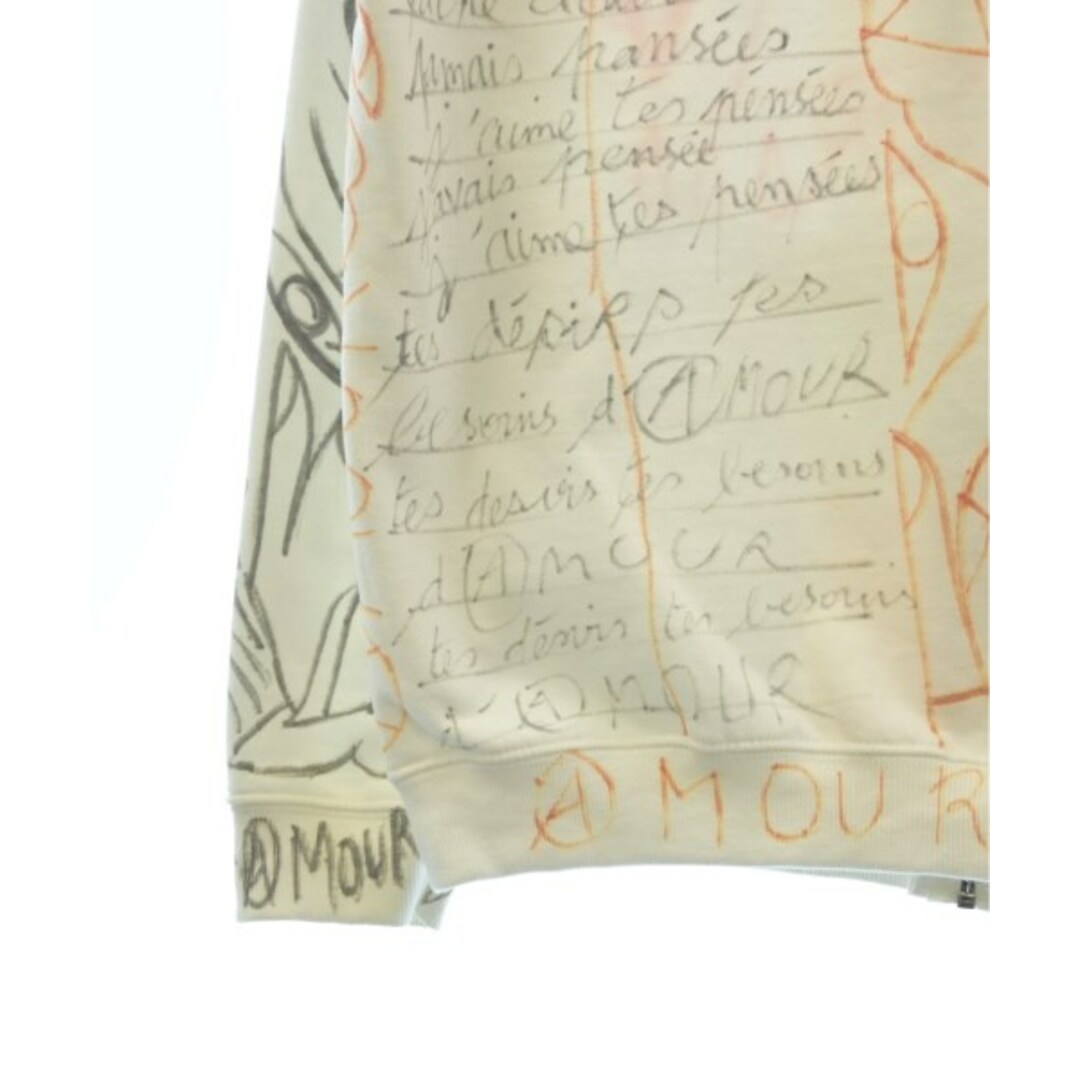 jamais pansées
j'aime tes pensées
javais pensée
j'aime tes pensées
tes désirs tes
besoins d'AMOUR
tes desirs tes besoins
d'AMOUR
tes désirs tes besoins
d'AMOUR
AMOUR
AMOUR